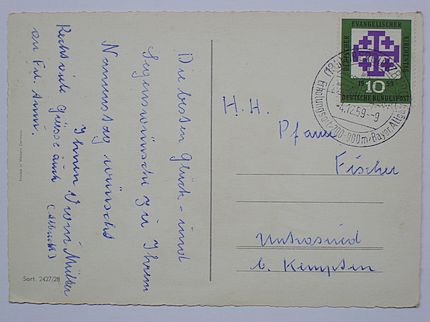 Die besten Glück- und
Segenswünsche zu Ihrem
Namenstag wünscht
Ihnen Vroni Müller
Recht viele Grüsse auch
an Frl. Anna.
Sort. 2427/28
EVANGELISCHER
10
DEUTSCHE BUNDESPOST
700-900m
Bayer. Allgäu
-4.12.59--9
H. H.
Pfarrer
Fischer
Untrasried
b. Kempten